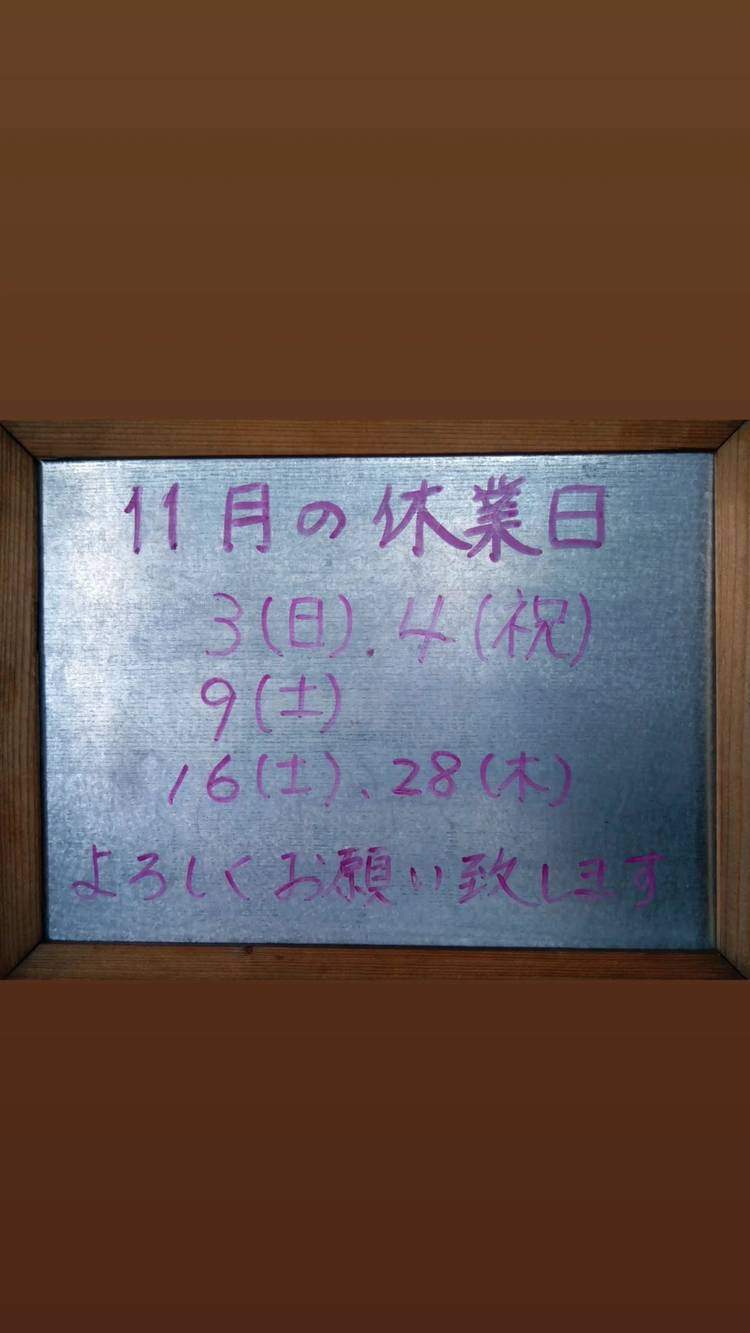 11月の休業日
3(日).4(祝)
9(土)
16(土)、28(木)
よろしくお願い致します